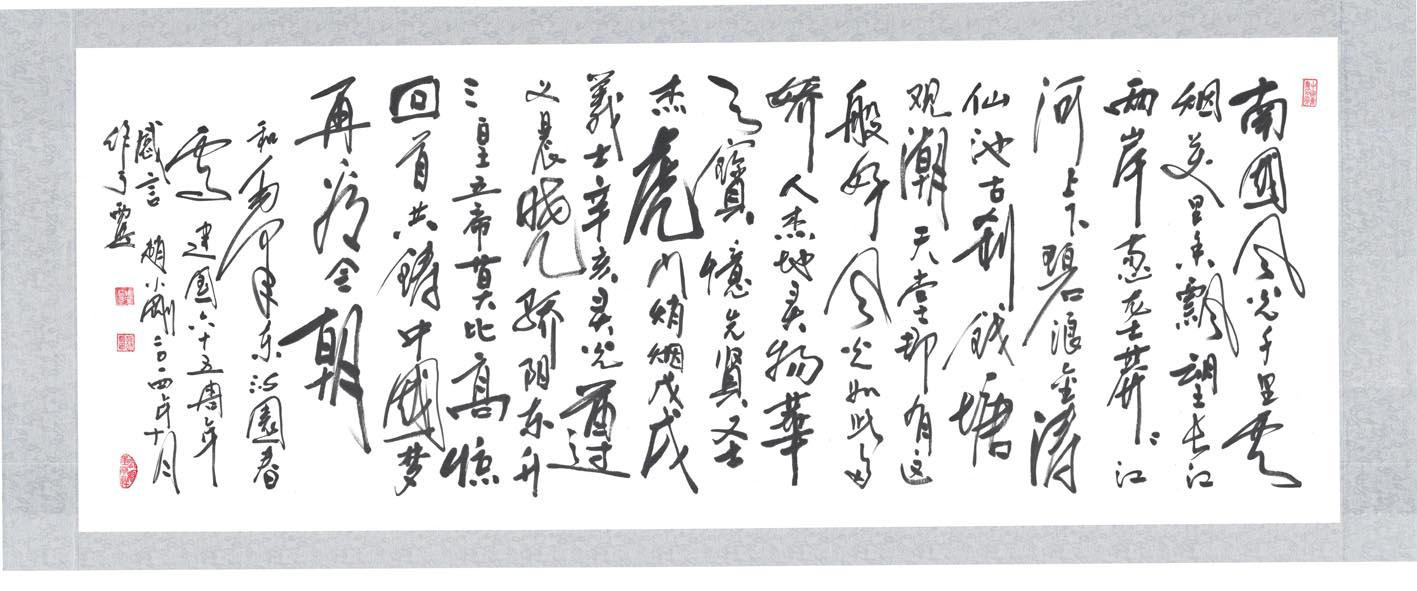 南國风光千里云
烟萬里香飘望长江
两岸葱茏莽々江
河上下碧浪金涛
仙池古刹钱塘
观潮天堂却有这
般好风光如此多
娇人杰地灵物華
天寳憶先賢圣
杰虎门销烟戊戌
義士辛亥灵光遵
义晨曉骄阳东升
三皇五帝莫比高惊
回首共鑄中國梦
再看今朝
和毛泽东沁園春
雪建国六十五周年
感言趙小剛二〇一四年十月
作于